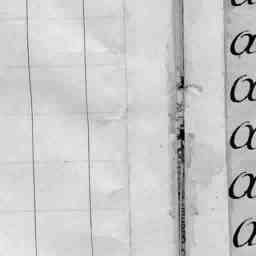 a
a
a
a
a